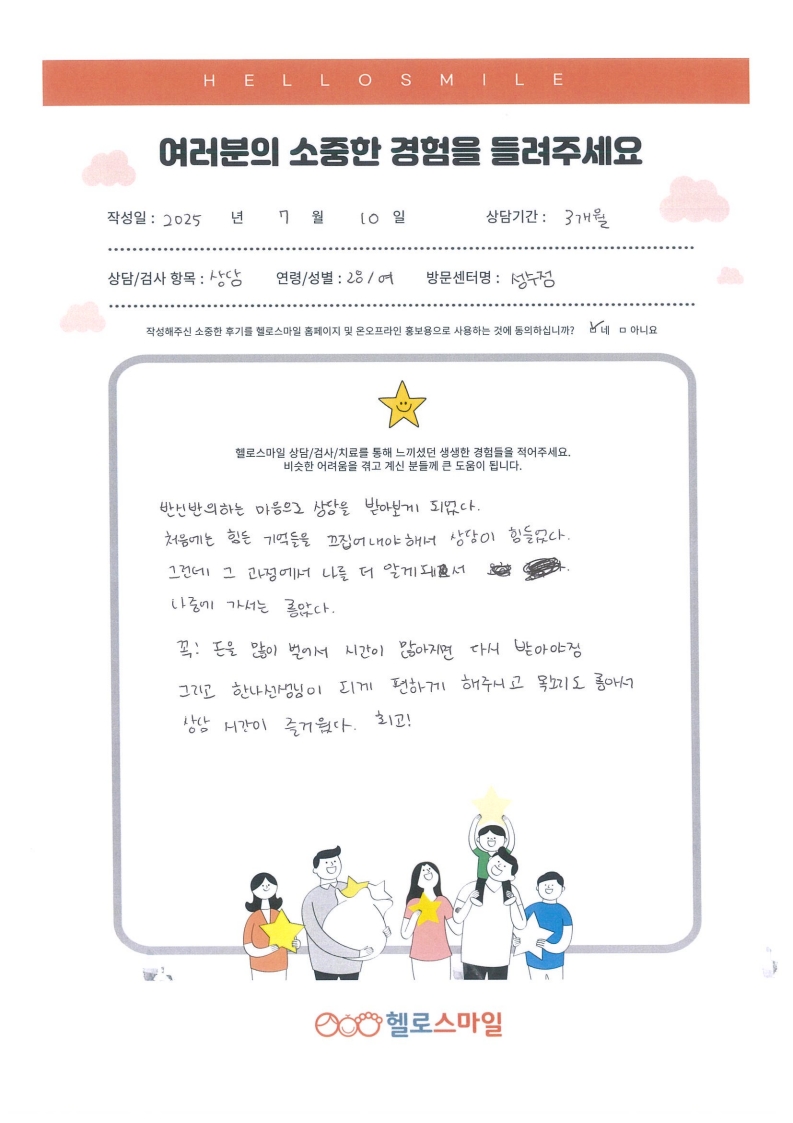 HELLOSMILE
여러분의 소중한 경험을 들려주세요
작성일 : 2025 년 7 월 10 일 상담기간 : 3개월
상담/검사 항목 : 상담 연령/성별 : 28 / 여 방문센터명 : 성수점
작성해주신 소중한 후기를 헬로스마일 홈페이지 및 온오프라인 홍보용으로 사용하는 것에 동의하십니까? ☑ 네 □ 아니요
헬로스마일 상담/검사/치료를 통해 느끼셨던 생생한 경험들을 적어주세요.
비슷한 어려움을 겪고 계신 분들께 큰 도움이 됩니다.
반신반의하는 마음으로 상담을 받아보게 되었다.
처음에는 힘든 기억들을 끄집어내야해서 상담이 힘들었다.
그런데 그 과정에서 나를 더 알게돼서
나중에 가서는 좋았다.
꼭! 돈을 많이 벌어서 시간이 많아지면 다시 받아야징
그리고 한나선생님이 되게 편하게 해주시고 목소리도 좋아서
상담 시간이 즐거웠다. 최고!
헬로스마일